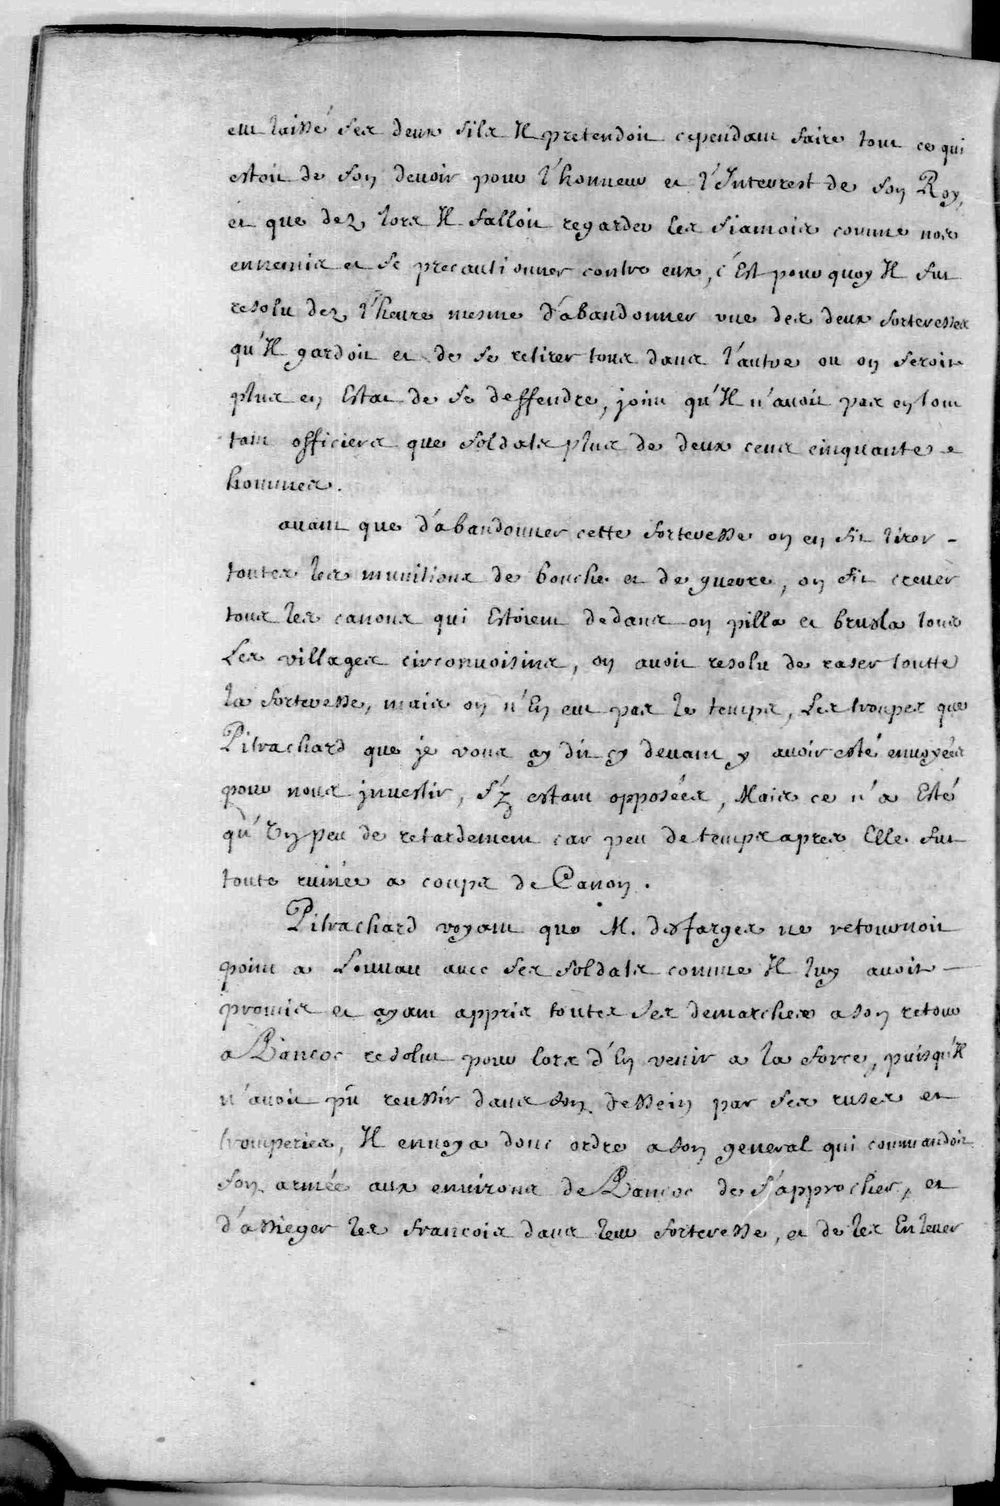 eut laissé ses deux fils Il pretendoit cependant faire tout ce qui
estoit de son devoir pour l'honneur et l'Interest de son Roy,
et que dez lors Il falloit regarder les siamois comme nos
ennemis et se precautionner contre eux, c'Est pourquoy Il fut
resolu dez l'heure mesme d'abandonner une des deux forteresses
qu'Il gardoit et de se retirer tous dans l'autre ou on seroit
plus en Estat de se deffendre, joint qu'Il n'avoit pas en tout
tant officiers que soldats plus de deux cens cinquante
hommes.
avant que d'abandonner cette forteresse on en fit tirer
toutes les munitions de bouche et de guerre, on fit crever
tous les canons qui Estoient dedans on pilla et brusla tous
Les villages circonvoisins, on avoit resolu de raser toutte
la forteresse, mais on n'En eut pas le temps, Les troupes que
Pitrachard que je vous ay dit cy devant y avoir esté envoyées
pour nous investir, s'y estant opposées, Mais ce n'a Esté
qu'Un peu de retardement car peu de temps apres Elle fut
toute ruinée a coups de Canon.
Pitrachard voyant que M. desfarges ne retournoit
point a Louvau avec ses soldats comme Il luy avoit
promis et ayant appris toutes ses demarches a son retour
a Bancoc resolut pour lors d'En venir a la force, puisqu'Il
n'avoit pû reussir dans son dessein par ses ruses et
tromperies, Il envoya donc ordre a son general qui commandoit
son armée aux environs de Bancoc de s'approcher, et
d'assieger les francois dans leur forteresse, et de les Enlever